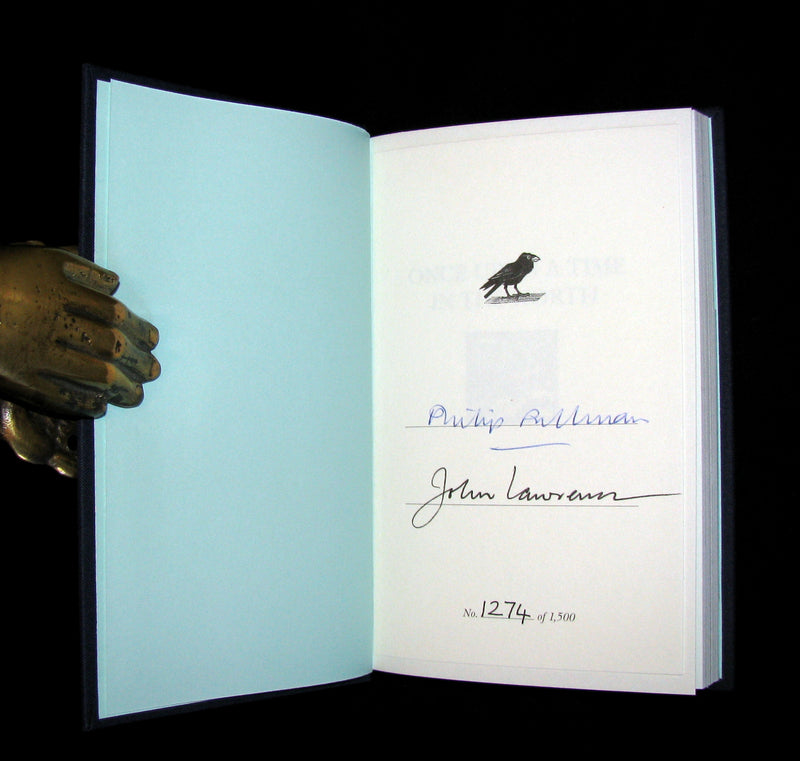 ONCE UPON A TIME
IN THE NORTH
Philip Pullman
John Lawrence
No. 1274 of 1,500